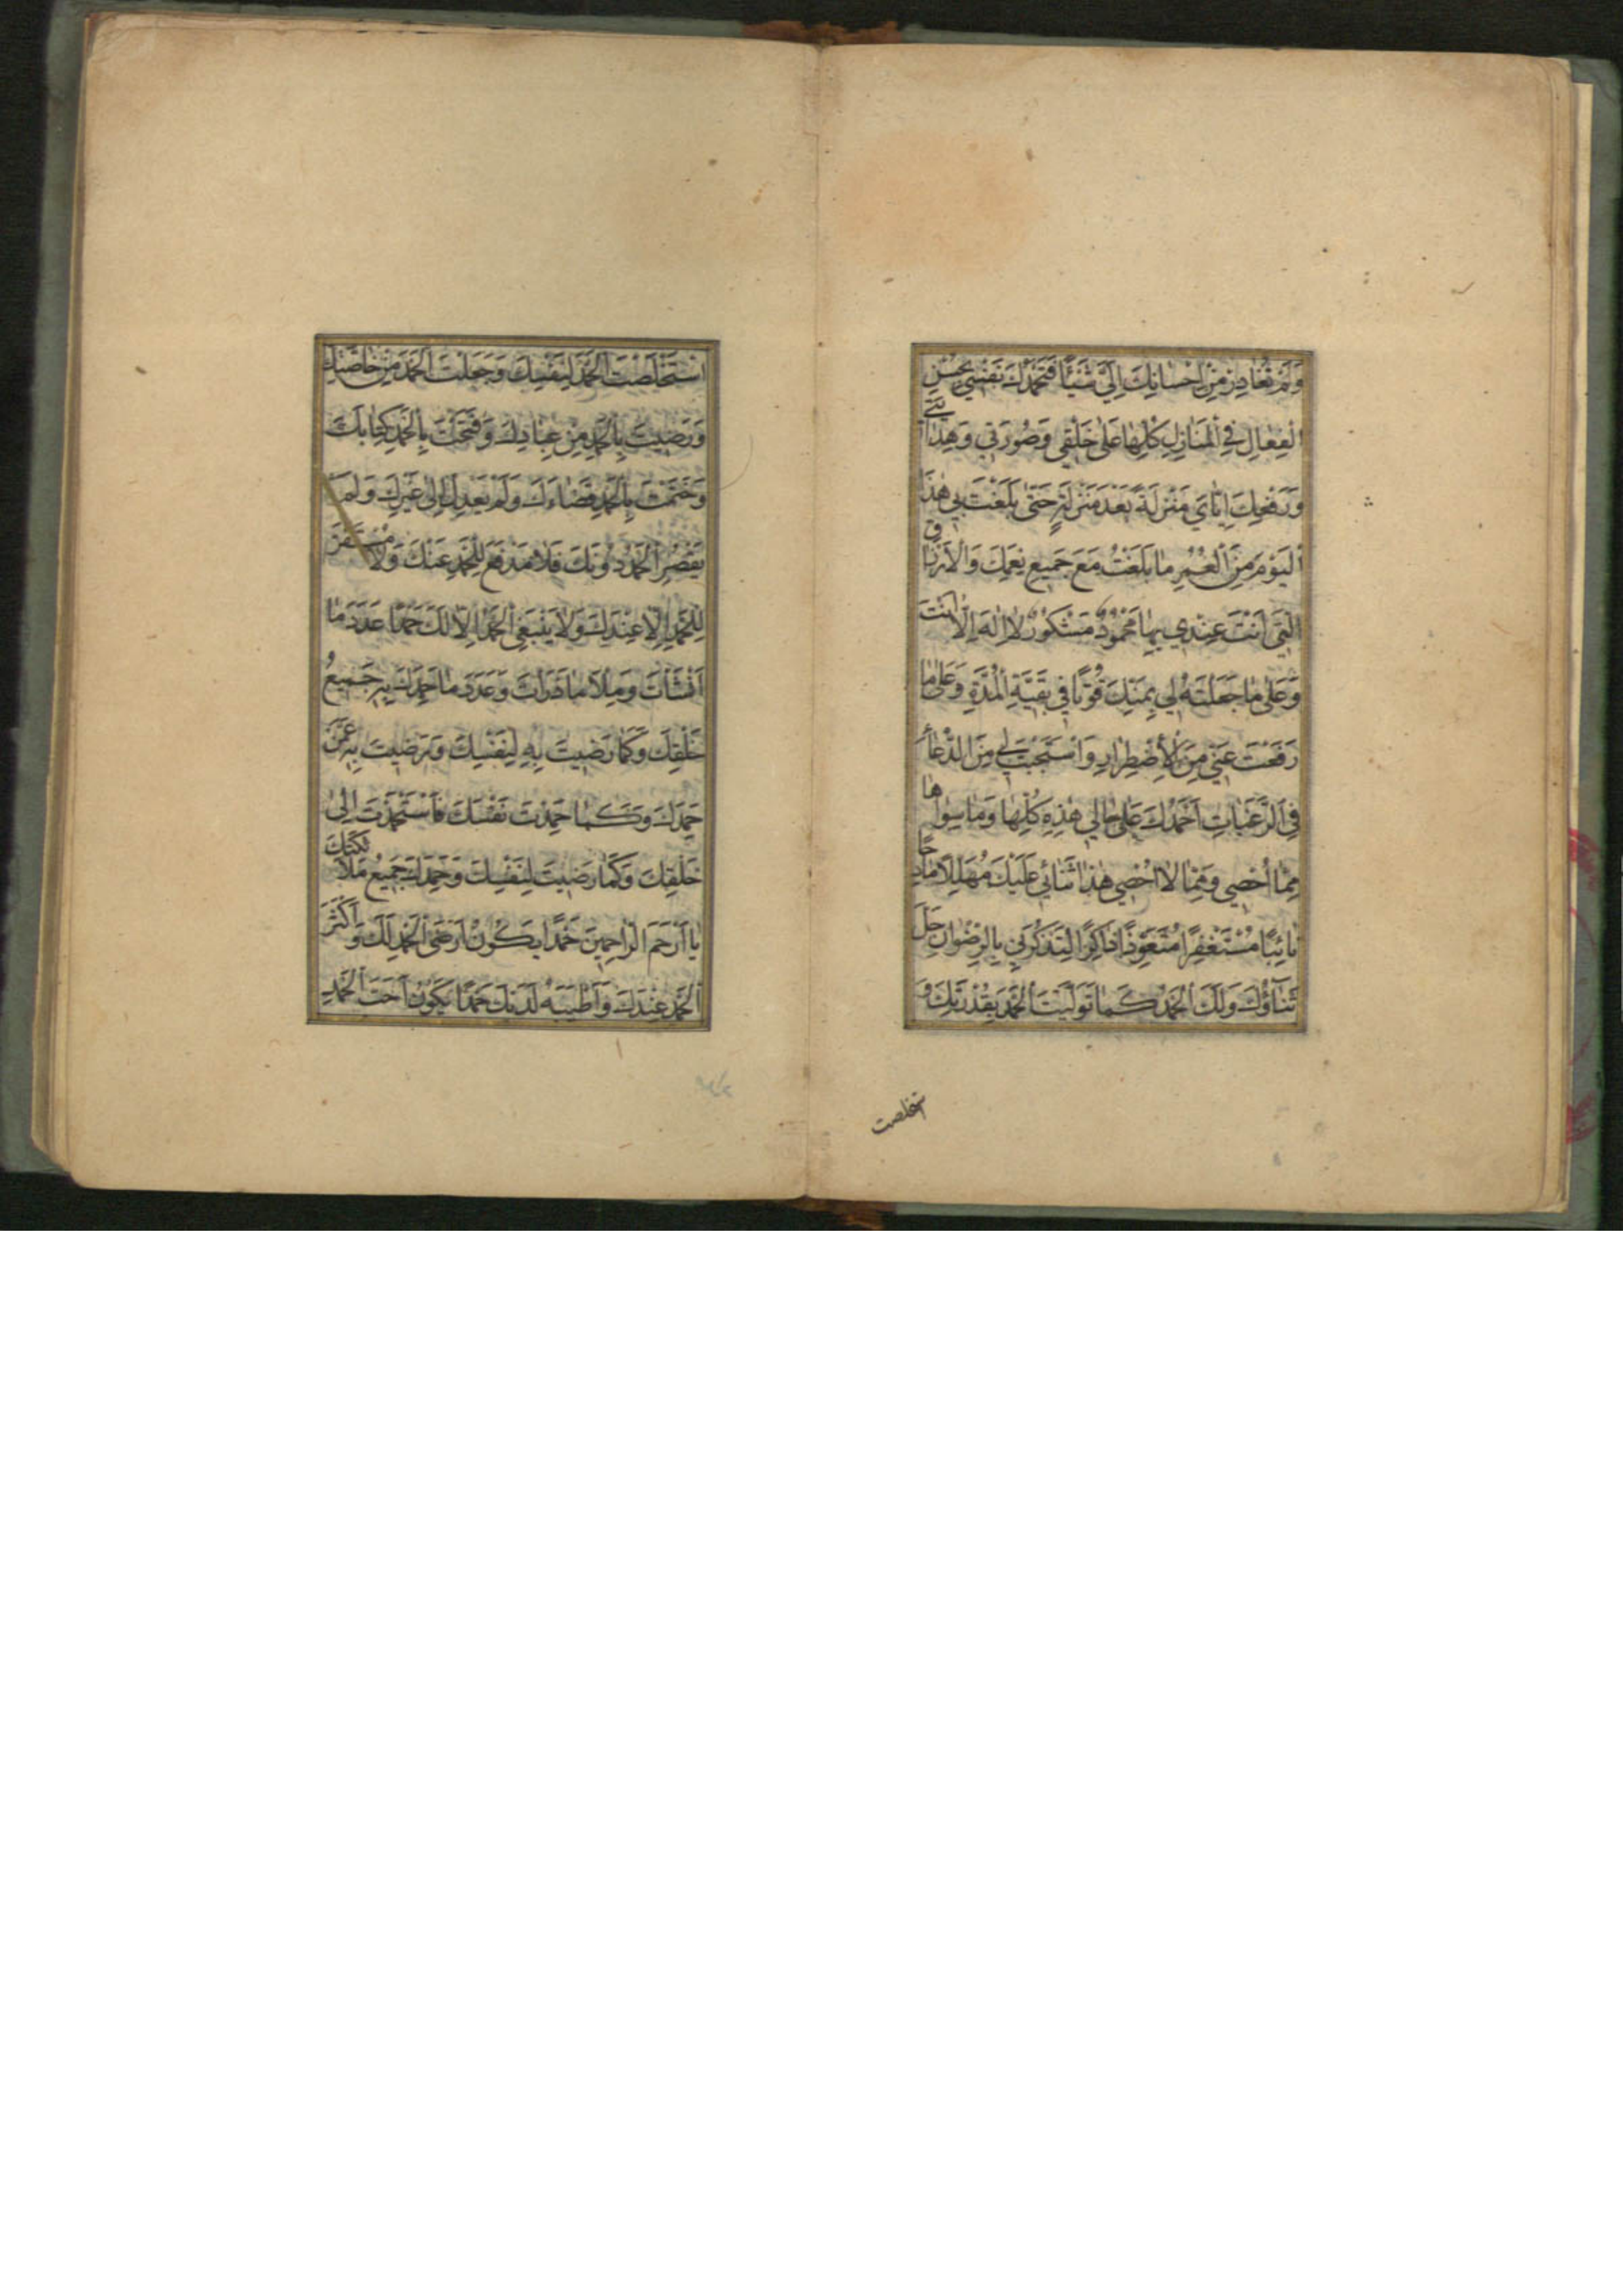 وَلَمْ تُغَادِرْ مِنْ اِحْسَانِكَ اِلَيَّ شَيْئًا فَتَحْمَدُكَ نَفْسِي بِحُسْنِ
الْفِعَالِ فِي الْمَنَازِلِ كُلِّهَا عَلٰى خَلْقِي وَصُورَتِي وَهِدَايَتِي
وَرَفْعِكَ اِيَّايَ مَنْزِلَةً بَعْدَ مَنْزِلَةٍ حَتّٰى بَلَغْتَ بِي هٰذَا
الْيَوْمَ مِنَ الْعُمْرِ مَا بَلَغْتُ مَعَ جَمِيعِ نِعَمِكَ وَالْاَرْزَاقِ
الَّتِي اَنْتَ عِنْدِي بِهَا مَحْمُودٌ مَشْكُورٌ لَا اِلٰهَ اِلَّا اَنْتَ
وَعَلٰى مَا جَعَلْتَهُ لِي بِمَنِّكَ قُوتًا فِي بَقِيَّةِ الْمُدَّةِ وَعَلٰى مَا
رَفَعْتَ عَنِّي مِنَ الْاِضْطِرَارِ وَاسْتَجَبْتَ لِي مِنَ الدُّعَاءِ
فِي الرَّغَبَاتِ اَحْمَدُكَ عَلٰى حَالِي هٰذِهِ كُلِّهَا وَمَا سِوَاهَا
مِمَّا اُحْصِي وَمِمَّا لَا اُحْصِي هٰذَا ثَنَائِي عَلَيْكَ مُهَلِّلًا مَادِحًا
تَائِبًا مُسْتَغْفِرًا مُتَعَوِّذًا ذَاكِرًا لِتَذْكُرَنِي بِالرِّضْوَانِ جَلَّ
ثَنَاؤُكَ وَلَكَ الْحَمْدُ كَمَا تَوَلَّيْتَ الْحَمْدَ بِقُدْرَتِكَ وَ
ستخلصت
اسْتَخْلَصْتَ الْحَمْدَ لِنَفْسِكَ وَجَعَلْتَ الْحَمْدَ مِنْ خَاصَّتِكَ
وَرَضِيتَ بِالْحَمْدِ مِنْ عِبَادِكَ وَفَتَحْتَ بِالْحَمْدِ كِتَابَكَ
وَخَتَمْتَ بِالْحَمْدِ قَضَاءَكَ وَلَمْ يَعْدِلْ اِلٰى غَيْرِكَ وَلَمْ
يَقْصُرِ الْحَمْدُ دُونَكَ فَلَا مَدْفَعَ لِلْحَمْدِ عَنْكَ وَلَا مُسْتَقَرَّ
لِلْحَمْدِ اِلَّا عِنْدَكَ وَلَا يَنْبَغِي الْحَمْدُ اِلَّا لَكَ حَمْدًا عَدَدَ مَا
اَنْشَأْتَ وَمِلْأَ مَا ذَرَأْتَ وَعَدَدَ مَا حَمِدَكَ بِهِ جَمِيعُ
خَلْقِكَ وَكَمَا رَضِيتَ بِهِ لِنَفْسِكَ وَرَضِيتَ بِهِ عَمَّنْ
حَمِدَكَ وَكَمَا حَمِدْتَ نَفْسَكَ فَاسْتَحْمَدْتَ اِلٰى
خَلْقِكَ وَكَمَا رَضِيتَ لِنَفْسِكَ وَحَمِدَكَ جَمِيعُ مَلَائِكَتِكَ
يَا اَرْحَمَ الرَّاحِمِينَ حَمْدًا يَكُونُ اَرْضَى الْحَمْدِ لَكَ وَاَكْثَرَ
الْحَمْدِ عِنْدَكَ وَاَطْيَبَهُ لَدَيْكَ حَمْدًا يَكُونُ اَحَبَّ الْحَمْدِ